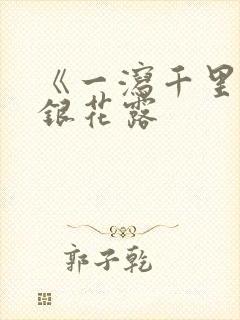 《一泻千里
银花露
郭子乾